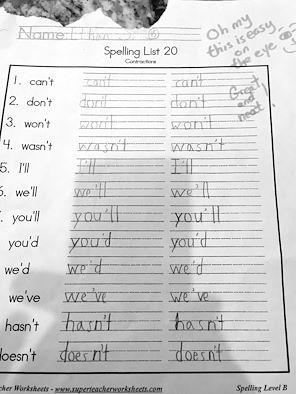 Name: Ethan S. 6
Oh my
this is easy
on the eye
Spelling List 20
Contractions
Great
and
neat!
1. can't can't can't
2. don't don't don't
3. won't won't won't
4. wasn't wasn't wasn't
5. I'll I'll I'll
6. we'll we'll we'll
7. you'll you'll you'll
you'd you'd you'd
we'd we'd we'd
we've we've we've
hasn't hasn't hasn't
doesn't doesn't doesn't
cher Worksheets - www.superteacherworksheets.com Spelling Level B